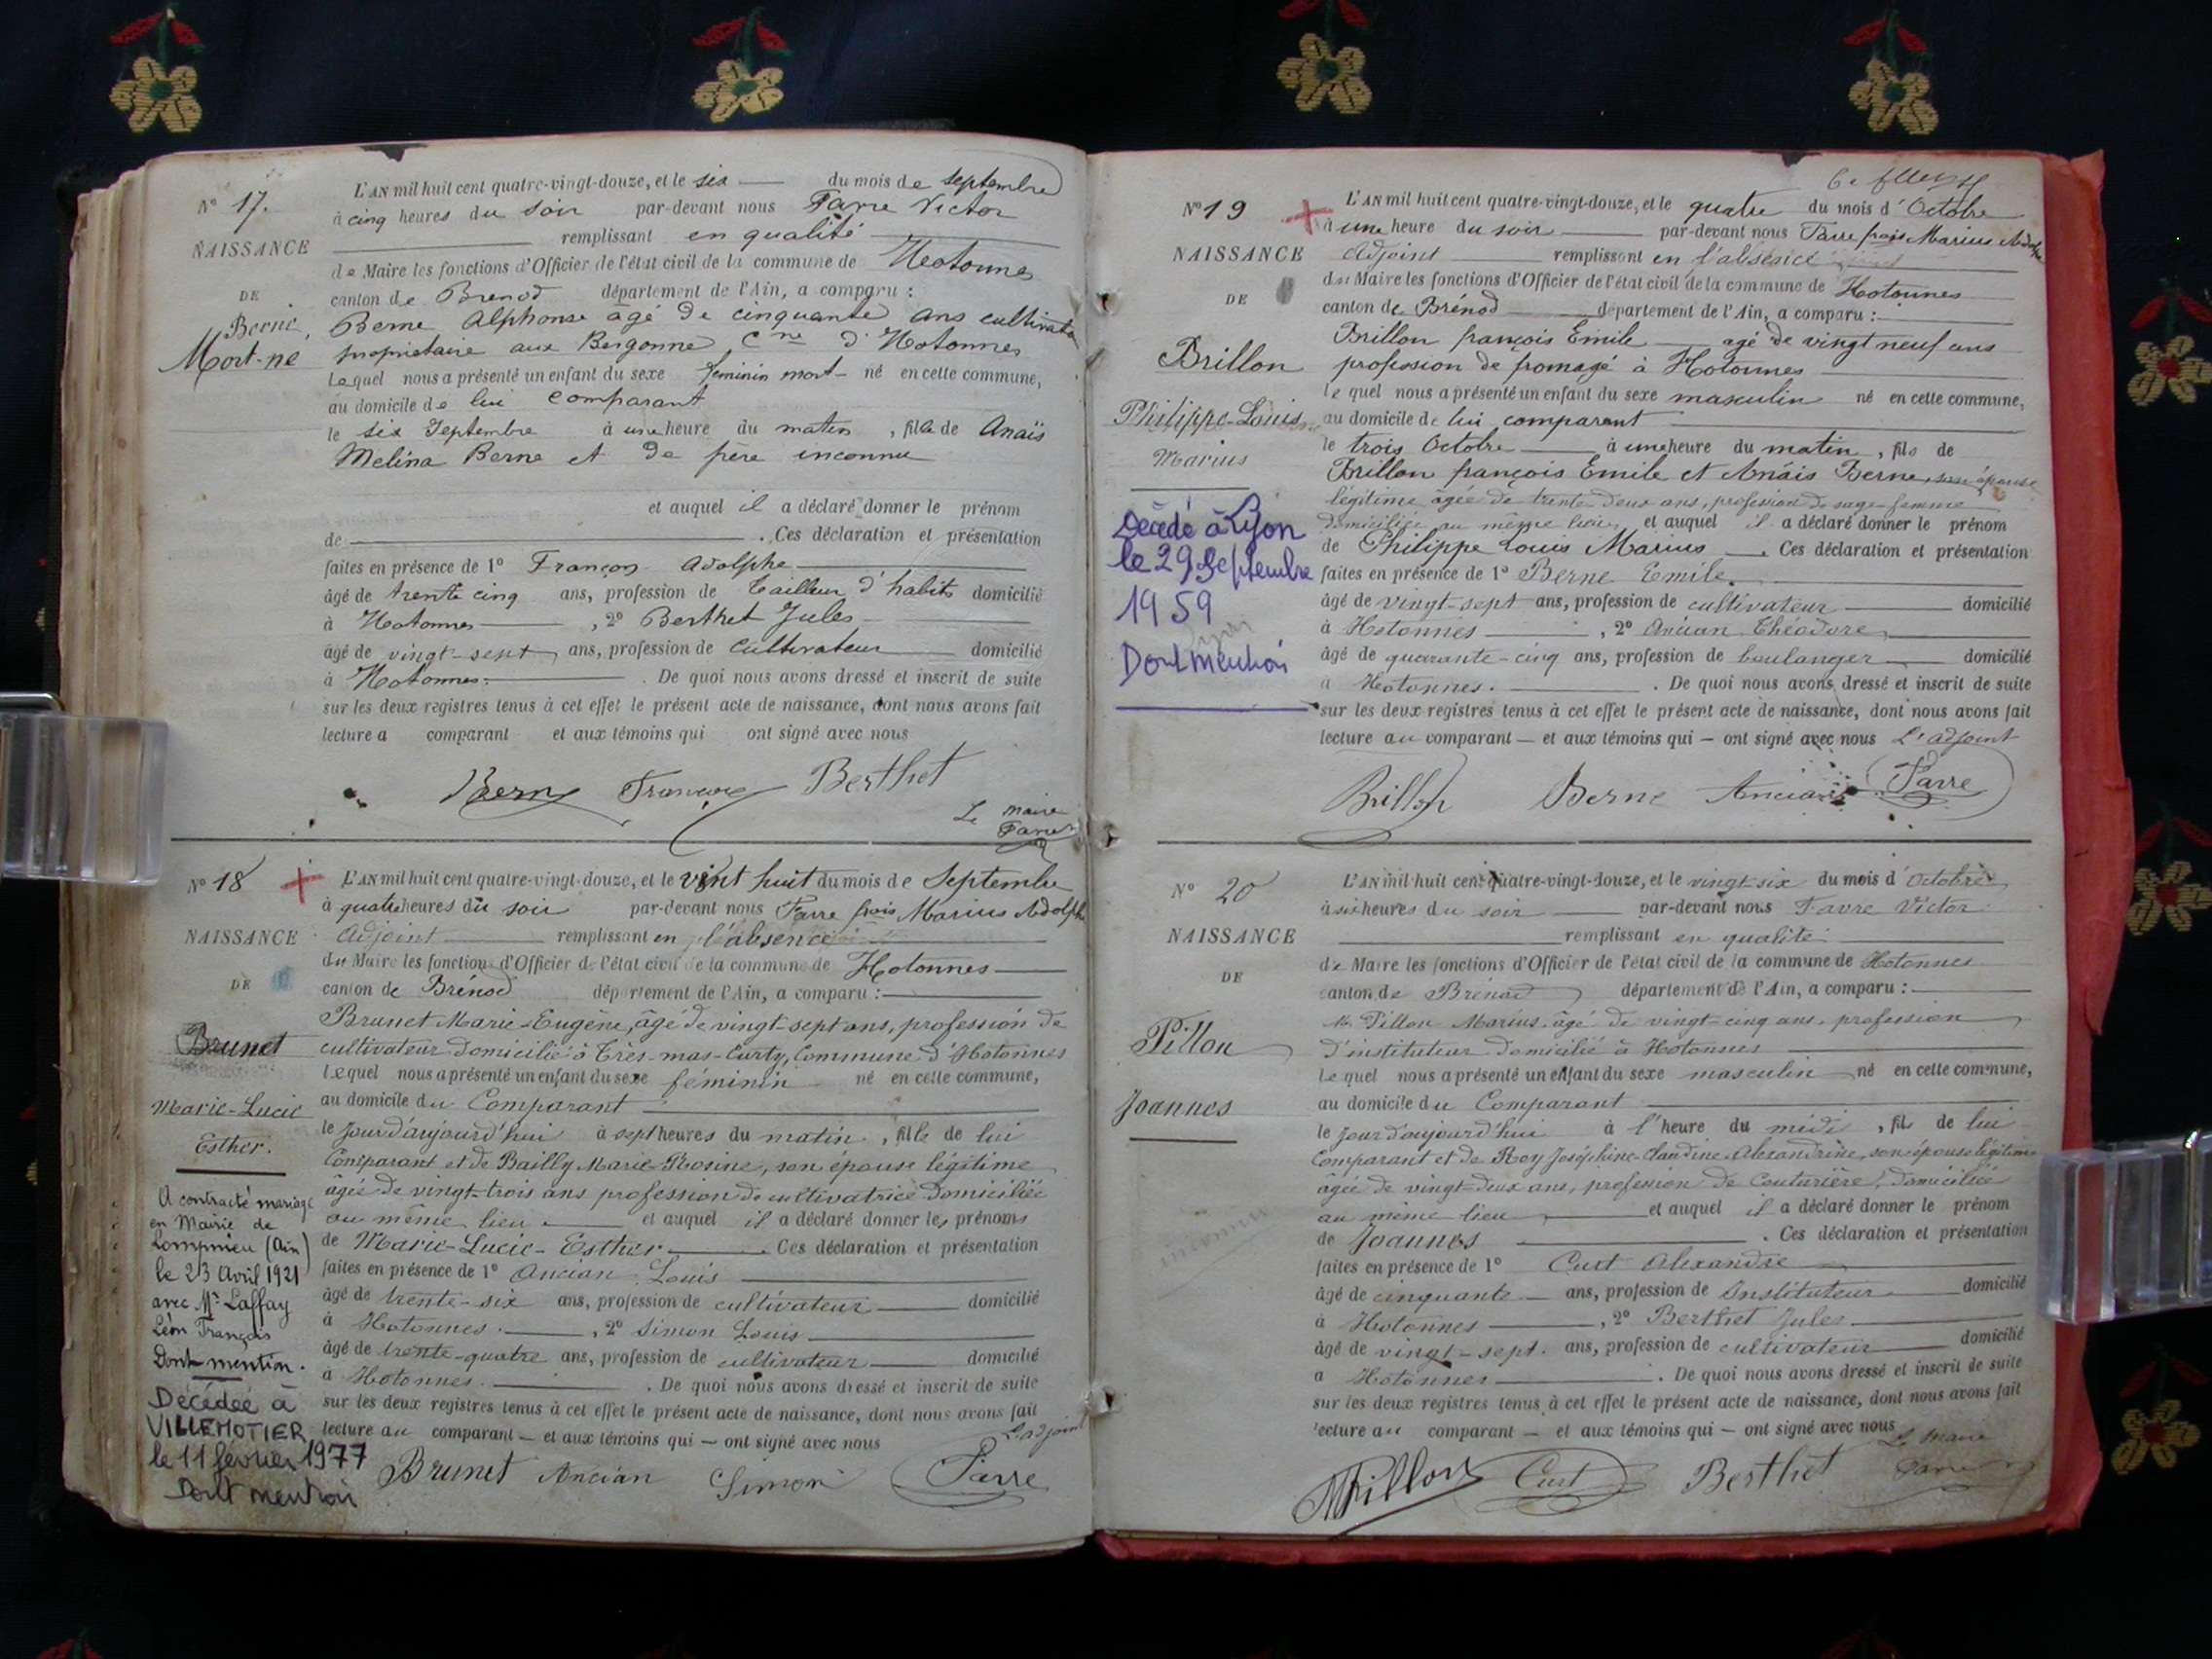 N° 17.
NAISSANCE
DE
Berne
Mort-né
L'AN mil huit cent quatre-vingt-douze, et le six du mois de Septembre
à cinq heures du soir par-devant nous Favre Victor
remplissant en qualité
de Maire les fonctions d'Officier de l'état civil de la commune de Hotonnes
canton de Brenod département de l'Ain, a comparu :
Berne Alphonse âgé de cinquante ans cultivateur
propriétaire aux Bergonne Cne d'Hotonnes
Lequel nous a présenté un enfant du sexe féminin mort- né en cette commune,
au domicile de lui comparant
le six Septembre à une heure du matin, fille de Anaïs
Melina Berne et de père inconnu
et auquel il a déclaré donner le prénom
de . Ces déclaration et présentation
faites en présence de 1° Françon Adolphe
âgé de trente cinq ans, profession de Tailleur d'habits domicilié
à Hotonnes , 2° Berthet Jules
âgé de vingt-sept ans, profession de cultivateur domicilié
à Hotonnes. . De quoi nous avons dressé et inscrit de suite
sur les deux registres tenus à cet effet le présent acte de naissance, dont nous avons fait
lecture a comparant et aux témoins qui ont signé avec nous
Berne Françon Berthet
Le maire
Favre
N° 18
NAISSANCE
DE
Brunet
Marie-Lucie
Esther.
A contracté mariage
en Mairie de
Lompnieu (Ain)
le 23 Avril 1921
avec Mr Laffay
Léon François
Dont mention.
Décédée à
VILLEMOTIER
le 11 février 1977
Dont mention
L'AN mil huit cent quatre-vingt-douze, et le vint huit du mois de Septembre
à quatre heures du soir par-devant nous Favre frois Marius Adolphe
Adjoint remplissant en l'absence
du Maire les fonctions d'Officier de l'état civil de la commune de Hotonnes
canton de Brénod département de l'Ain, a comparu :
Brunet Marie-Eugène, âgé de vingt-sept ans, profession de
cultivateur domicilié à Très-mas-Curty, Commune d'Hotonnes
Lequel nous a présenté un enfant du sexe féminin né en cette commune,
au domicile du Comparant
le Jour d'aujourd'hui à sept heures du matin, fille de lui
Comparant et de Bailly Marie-Rosine, son épouse légitime
âgée de vingt-trois ans profession de cultivatrice domiciliée
au même lieu et auquel il a déclaré donner les prénoms
de Marie-Lucie-Esther . Ces déclaration et présentation
faites en présence de 1° Ancian Louis
âgé de trente-six ans, profession de cultivateur domicilié
à Hotonnes. , 2° Simon Louis
âgé de trente-quatre ans, profession de cultivateur domicilié
à Hotonnes. . De quoi nous avons dressé et inscrit de suite
sur les deux registres tenus à cet effet le présent acte de naissance, dont nous avons fait
lecture au comparant — et aux témoins qui — ont signé avec nous
L'adjoint
Brunet Ancian Simon Favre
N° 19
NAISSANCE
DE
Brillon
Philippe-Louis
Marius
Décédé à Lyon
le 29 Septembre
1959
Dont mention
L'AN mil huit cent quatre-vingt-douze, et le quatre du mois d'Octobre
à une heure du soir par-devant nous Favre frois Marius Adolphe
Adjoint remplissant en l'absence
du Maire les fonctions d'Officier de l'état civil de la commune de Hotonnes
canton de Brénod département de l'Ain, a comparu :
Brillon françois Emile agé de vingt neuf ans
profession de fromagé à Hotonnes
lequel nous a présenté un enfant du sexe masculin né en cette commune,
au domicile de lui comparant
le trois Octobre à une heure du matin, fils de
Brillon françois Emile et Anaïs Berne, son épouse
légitime âgée de trente deux ans, profession de sage-femme
domiciliée au même lieu, et auquel il a déclaré donner le prénom
de Philippe Louis Marius . Ces déclaration et présentation
faites en présence de 1° Berne Emile.
âgé de vingt-sept ans, profession de cultivateur domicilié
à Hotonnes , 2° Ancian Théodore,
âgé de quarante-cinq ans, profession de boulanger domicilié
à Hotonnes. . De quoi nous avons dressé et inscrit de suite
sur les deux registres tenus à cet effet le présent acte de naissance, dont nous avons fait
lecture au comparant — et aux témoins qui — ont signé avec nous L'adjoint
Brillon Berne Ancian Favre
N° 20
NAISSANCE
DE
Pillon
Joannes
L'AN mil huit cent quatre-vingt-douze, et le vingt-six du mois d'Octobre
à six heures du soir par-devant nous Favre Victor
remplissant en qualité
de Maire les fonctions d'Officier de l'état civil de la commune de Hotonnes
canton de Brénod département de l'Ain, a comparu :
Mr Pillon Marius, âgé de vingt-cinq ans, profession
d'instituteur domicilié à Hotonnes
Lequel nous a présenté un enfant du sexe masculin né en cette commune,
au domicile du Comparant
le Jour d'aujourd'hui à l'heure du midi, fils de lui
Comparant et de Roy Joséphine Claudine Alexandrine, son épouse légitime
âgée de vingt-deux ans, profession de Couturière, domiciliée
au même lieu et auquel il a déclaré donner le prénom
de Joannes . Ces déclaration et présentation
faites en présence de 1° Curt Alexandre
âgé de cinquante ans, profession de Instituteur domicilié
à Hotonnes , 2° Berthet Jules
âgé de vingt-sept. ans, profession de cultivateur domicilié
a Hotonnes . De quoi nous avons dressé et inscrit de suite
sur les deux registres tenus à cet effet le présent acte de naissance, dont nous avons fait
lecture au comparant — et aux témoins qui — ont signé avec nous
Le Maire
MPillon Curt Berthet Favre